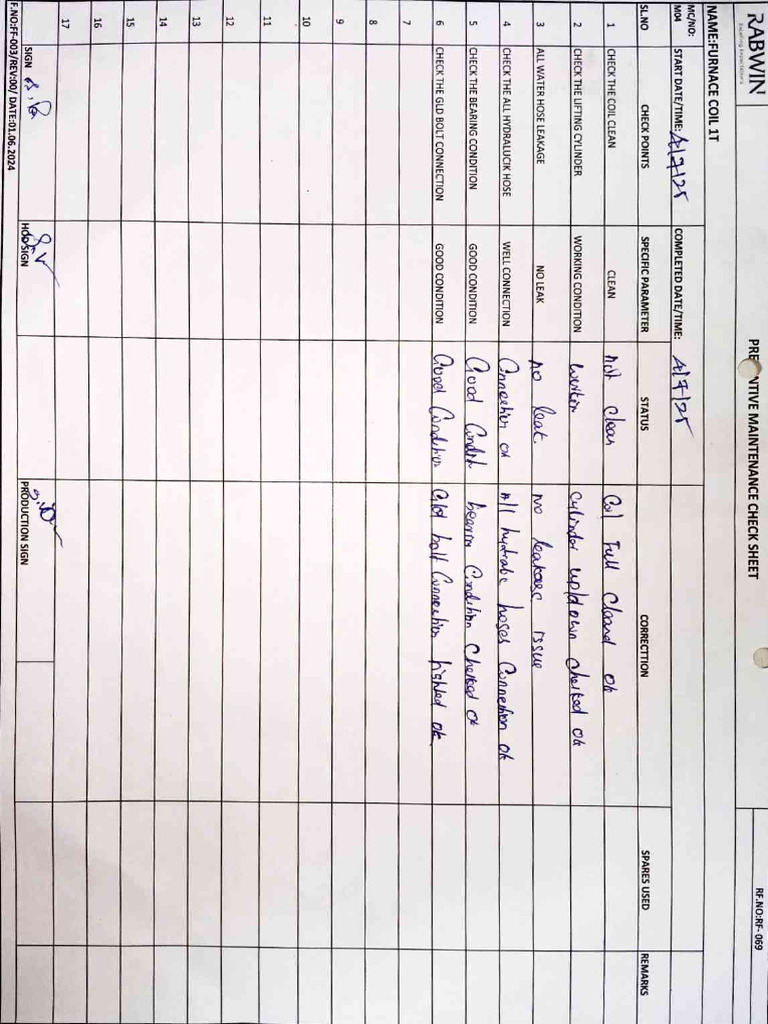 RABWIN
PREVENTIVE MAINTENANCE CHECK SHEET
RF.NO:RF- 069
NAME:FURNACE COIL 1T
MC/NO: M04
START DATE/TIME: 4/7/25
COMPLETED DATE/TIME: 4/7/25
SL.NO CHECK POINTS SPECIFIC PARAMETER STATUS CORRECTTION SPARES USED REMARKS
1 CHECK THE COIL CLEAN CLEAN not clean Coil Full Cleand ok
2 CHECK THE LIFTING CYLINDER WORKING CONDITION workin Cylinder up/down cherked ok
3 ALL WATER HOSE LEAKAGE NO LEAK no leak. no leakaes issue
4 CHECK THE ALL HYDRALUCIK HOSE WELL CONNECTION Connection ok all hydrabic hoses Connection ok
5 CHECK THE BEARING CONDITION GOOD CONDITION Good Condit Condition Cherked ok
6 CHECK THE GLD BOLT CONNECTION GOOD CONDITION Good Condition Gld bolt Connection tighted ok.
7
8
9
10
11
12
13
14
15
16
17
SIGN HOD SIGN PRODUCTION SIGN
F.NO:FF-003/REV:00/ DATE:01.06.2024